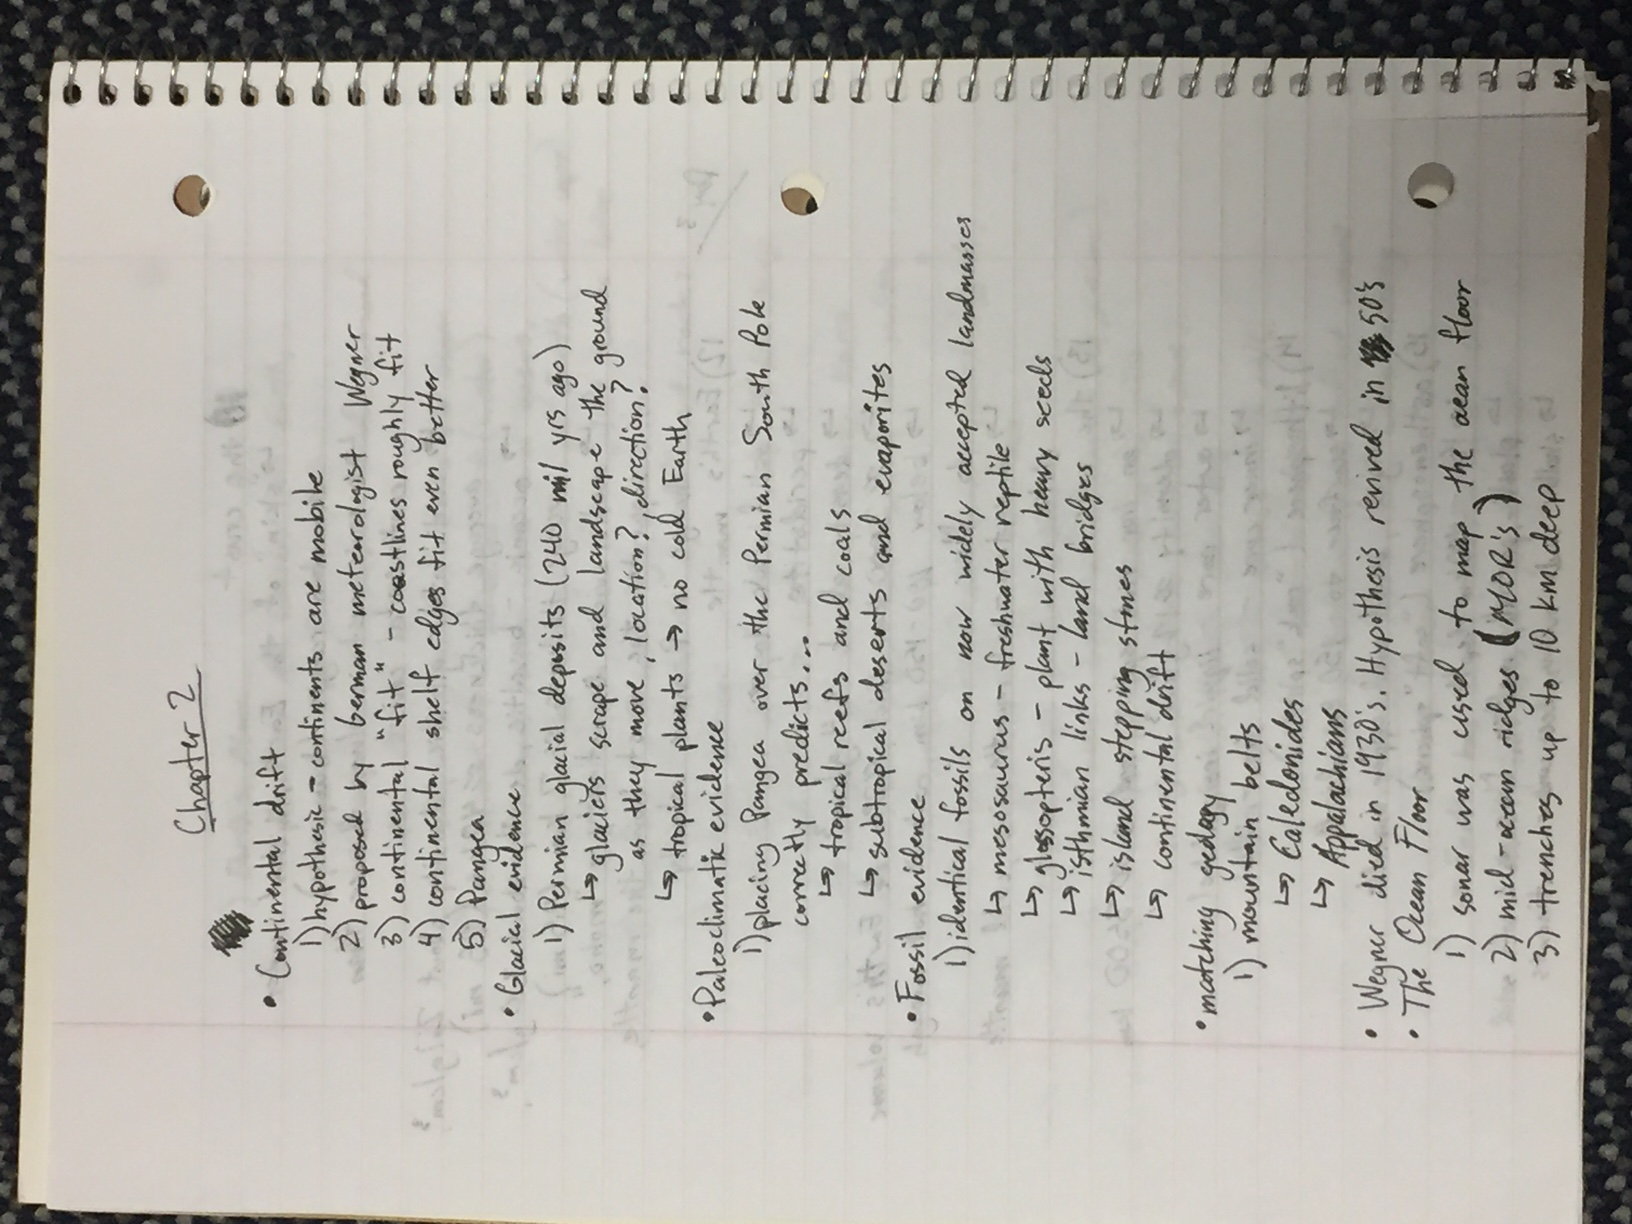 Chapter 2
• Continental drift
1) hypothesis - continents are mobile
2) proposed by German meteorologist Wegner
3) continental "fit" - coastlines roughly fit
4) continental shelf edges fit even better
5) Pangea
• Glacial evidence
1) Permian glacial deposits (240 mil yrs ago)
↳ glaciers scrape and landscape the ground
as they move, location?, direction?
↳ tropical plants → no cold Earth
• Paleoclimatic evidence
1) placing Pangea over the Permian South Pole
correctly predicts...
↳ tropical reefs and coals
↳ subtropical deserts and evaporites
• Fossil evidence
1) identical fossils on now widely accepted landmasses
↳ mesosaurus - freshwater reptile
↳ glossopteris - plant with heavy seeds
↳ isthmian links - land bridges
↳ island stepping stones
↳ continental drift
• matching geology
1) mountain belts
↳ Caledonides
↳ Appalachians
• Wegner died in 1930's. Hypothesis revived in 50's
• The Ocean Floor
1) sonar was used to map the ocean floor
2) mid-ocean ridges (MOR's)
3) trenches up to 10 km deep